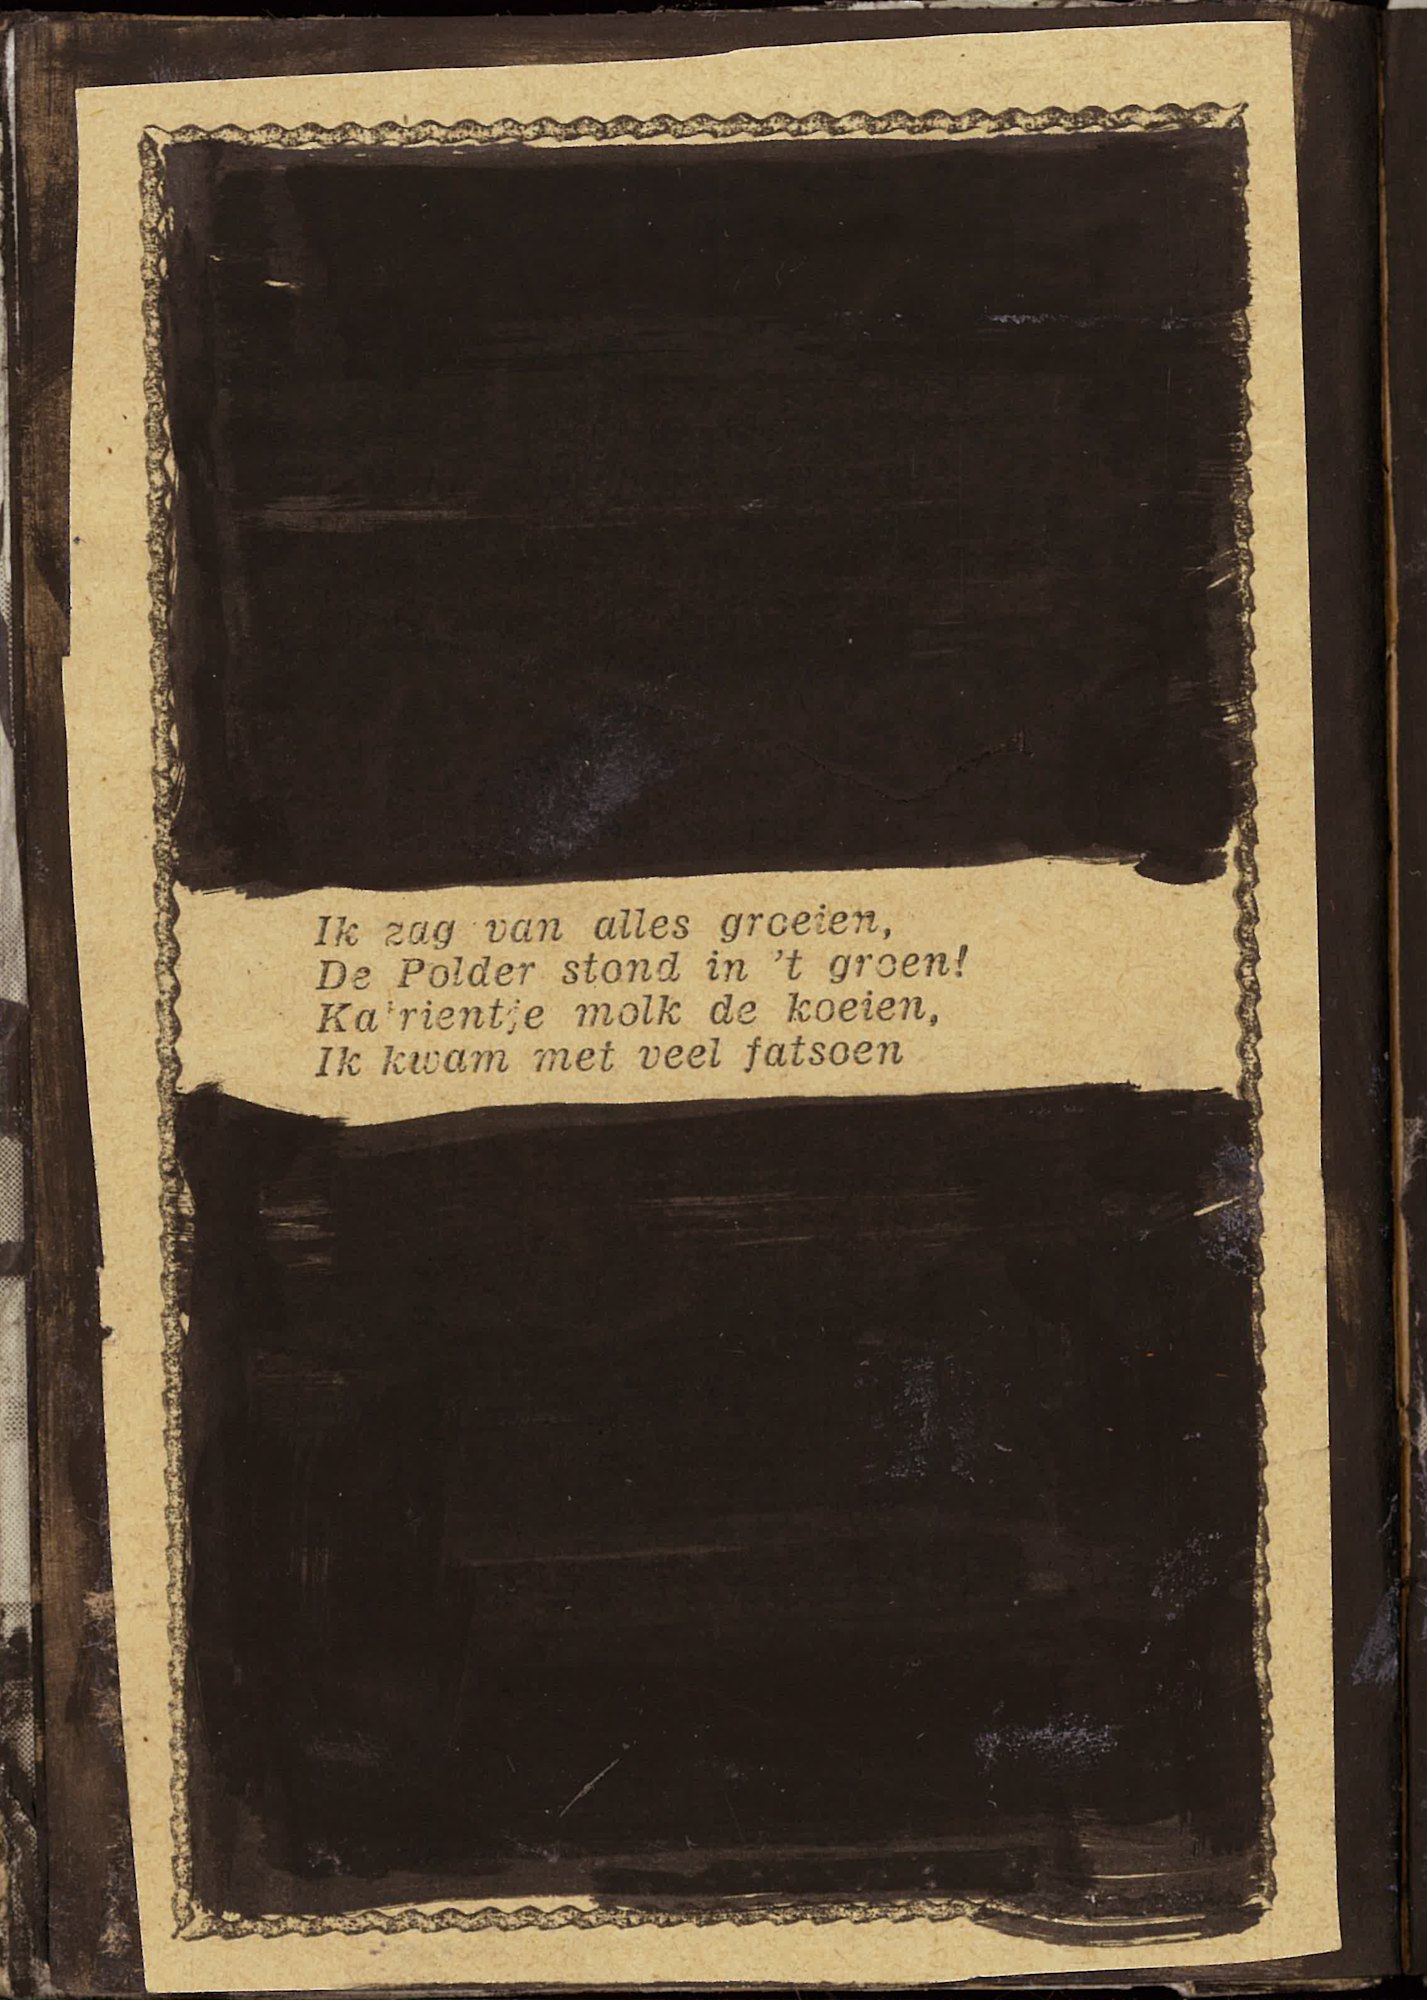 Ik zag van alles groeien,
De Polder stond in 't groen!
Ka'rientje molk de koeien,
Ik kwam met veel fatsoen